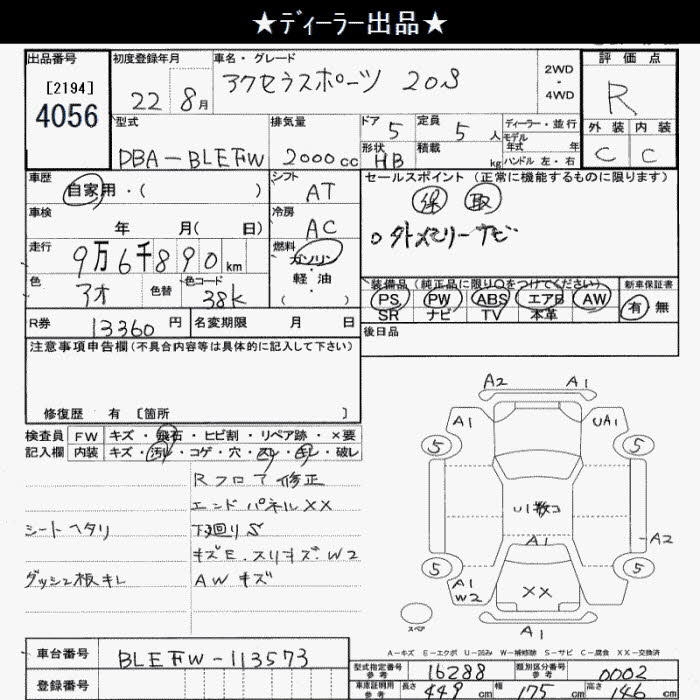 ★ディーラー出品★
出品番号
[2194]
4056
初度登録年月
22年8月
車名・グレード
アクセラスポーツ 20S
2WD
・
4WD
評価点
R
外装 内装
C C
型式
DBA-BLEFW
排気量
2000cc
ドア 5
形状 HB
定員 5人
積載 kg
ディーラー・並行
モデル年式 年
ハンドル 左・右
車歴
自家用・( )
シフト
AT
車検
年 月( 日)
冷房
AC
走行
9万6千890km
燃料
ガソリン
軽油
( )
色
アオ
色替
色コード
38K
R券 13360円
名変期限 月 日
セールスポイント(正常に機能するものに限ります)
録 取
○タトメモリーナビ
装備品(純正品に限り○をつけてください)
PS PW ABS エアB AW
SR ナビ TV 本革
新車保証書
有 無
後日品
注意事項申告欄(不具合内容等は具体的に記入して下さい)
修復歴 有 [箇所 ]
検査員記入欄
FW キズ・飛石・ヒビ割・リペア跡・×要
内装 キズ・汚レ・コゲ・穴・スレ・キレ・破レ
Rフロア修正
エンドパネルXX
シートヘタリ
下廻りS
キズE.スリキズ.W2
ダッシュ板キレ
AWキズ
A2 A1
A1 UA1
5 5
U1散コ
A1
-A2
5 5
A1
W2
XX
スペア
A1
A-キズ E-エクボ U-凹み W-補修跡 S-サビ C-腐食 XX-交換済
車台番号
BLEFW-113573
登録番号
型式指定番号 参考 16288
類別区分番号 参考 0002
車庫証明用 参考 長さ 449cm 幅 175cm 高さ 146cm